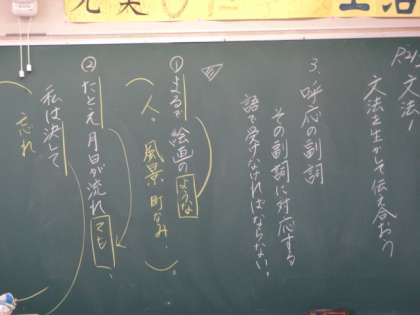 文法
文法を生かして伝え合おう
3. 呼応の副詞
その副詞に対応する
語で受けなければならない。
① まるで絵画のような
(人、風景、町なみ )。
② たとえ月日が流れても、
私は決して
忘れ